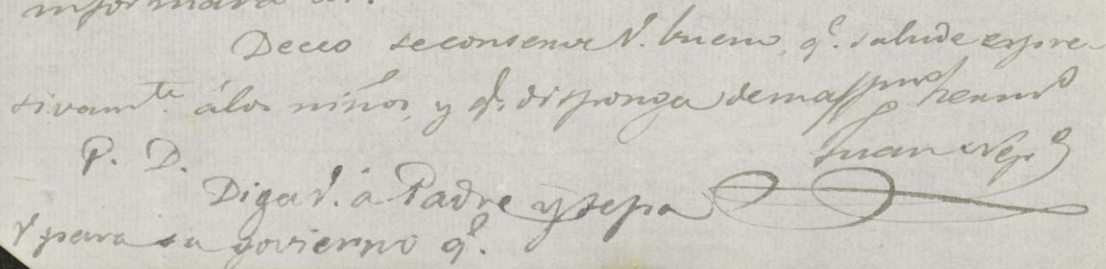 informará
Deceo se conserve V. bueno, q.e salude espre-
sivam.te á los niños, y q.e disponga de
herm.o
Juan Nep.o
P. D.
Diga V. á Padre y sepa
V. para su govierno q.e